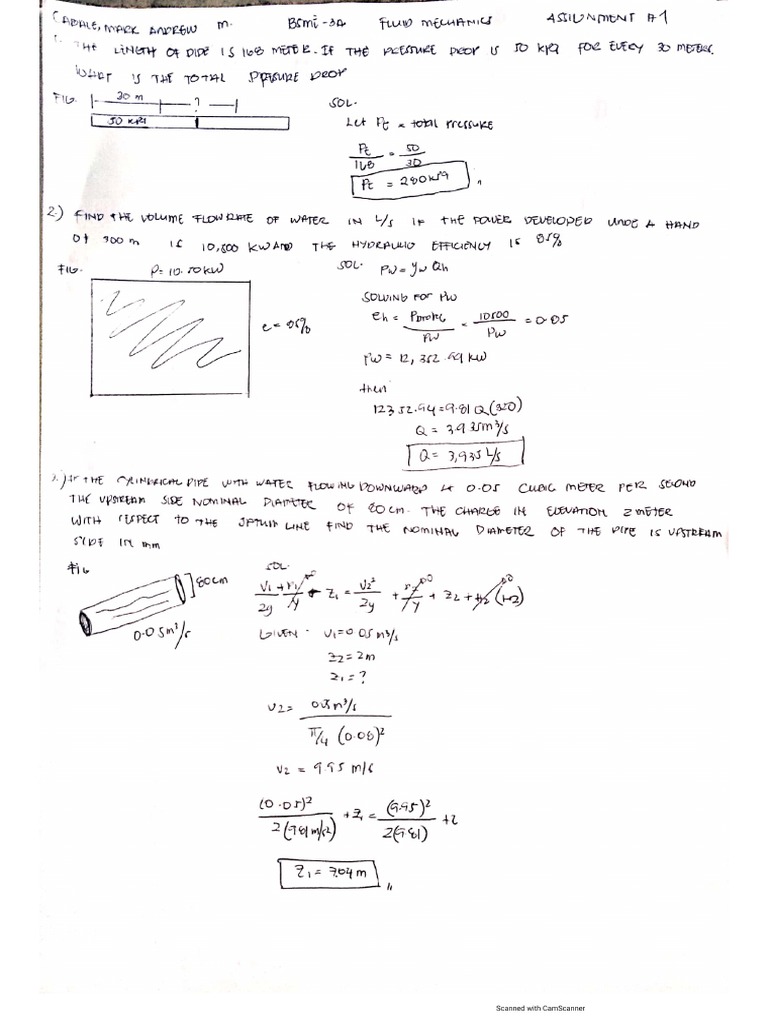 CABALE, MARK ANDREW M. BSME-3A FLUID MECHANICS ASSIGNMENT #1
1. THE LENGTH OF PIPE IS 168 METER. IF THE PRESSURE DROP IS 50 KPA FOR EVERY 30 METERS.
WHAT IS THE TOTAL PRESSURE DROP
FIG. 30 m ?
50 KPA
SOL.
Let Pt = total pressure
Pt/168 = 50/30
Pt = 280 KPA
2.) FIND THE VOLUME FLOWRATE OF WATER IN L/S IF THE POWER DEVELOPED UNDE A HAND
OF 300 m IS 10,500 KW AND THE HYDRAULIC EFFICIENCY IS 85%
FIG. P= 10.50KW
e = 85%
SOL. PW = γw Qh
SOLVING FOR PW
eh = Pbrake/PW = 10500/PW = 0.85
PW = 12, 352.94 KW
then
12352.94 = 9.81 Q (320)
Q = 3.935m³/s
Q = 3,935 L/s
3.) IF THE CYLINDRICAL PIPE WITH WATER FLOWING DOWNWARD AT 0.05 CUBIC METER PER SECOND
THE UPSTREAM SIDE NOMINAL DIAMETER OF 80 cm. THE CHARGE IN ELEVATION 2 METER
WITH RESPECT TO THE LINE FIND THE NOMINAL DIAMETER OF THE PIPE IS UPSTREAM
SIDE IN mm
FIG
80cm
0.05m³/s
SOL.
V1/2g + P1/γ + Z1 = V2²/2g + P2/γ + Z2 + H2 (1-2)
GIVEN: V1=0.05 m³/s
Z2 = 2m
Z1 = ?
V2 = 0.05 m³/s / π/4 (0.08)²
V2 = 9.95 m/s
(0.05)²/2(9.81 m/s2) + Z1 = (9.95)²/2(9.81) + 2
Z1 = 7.04 m
Scanned with CamScanner